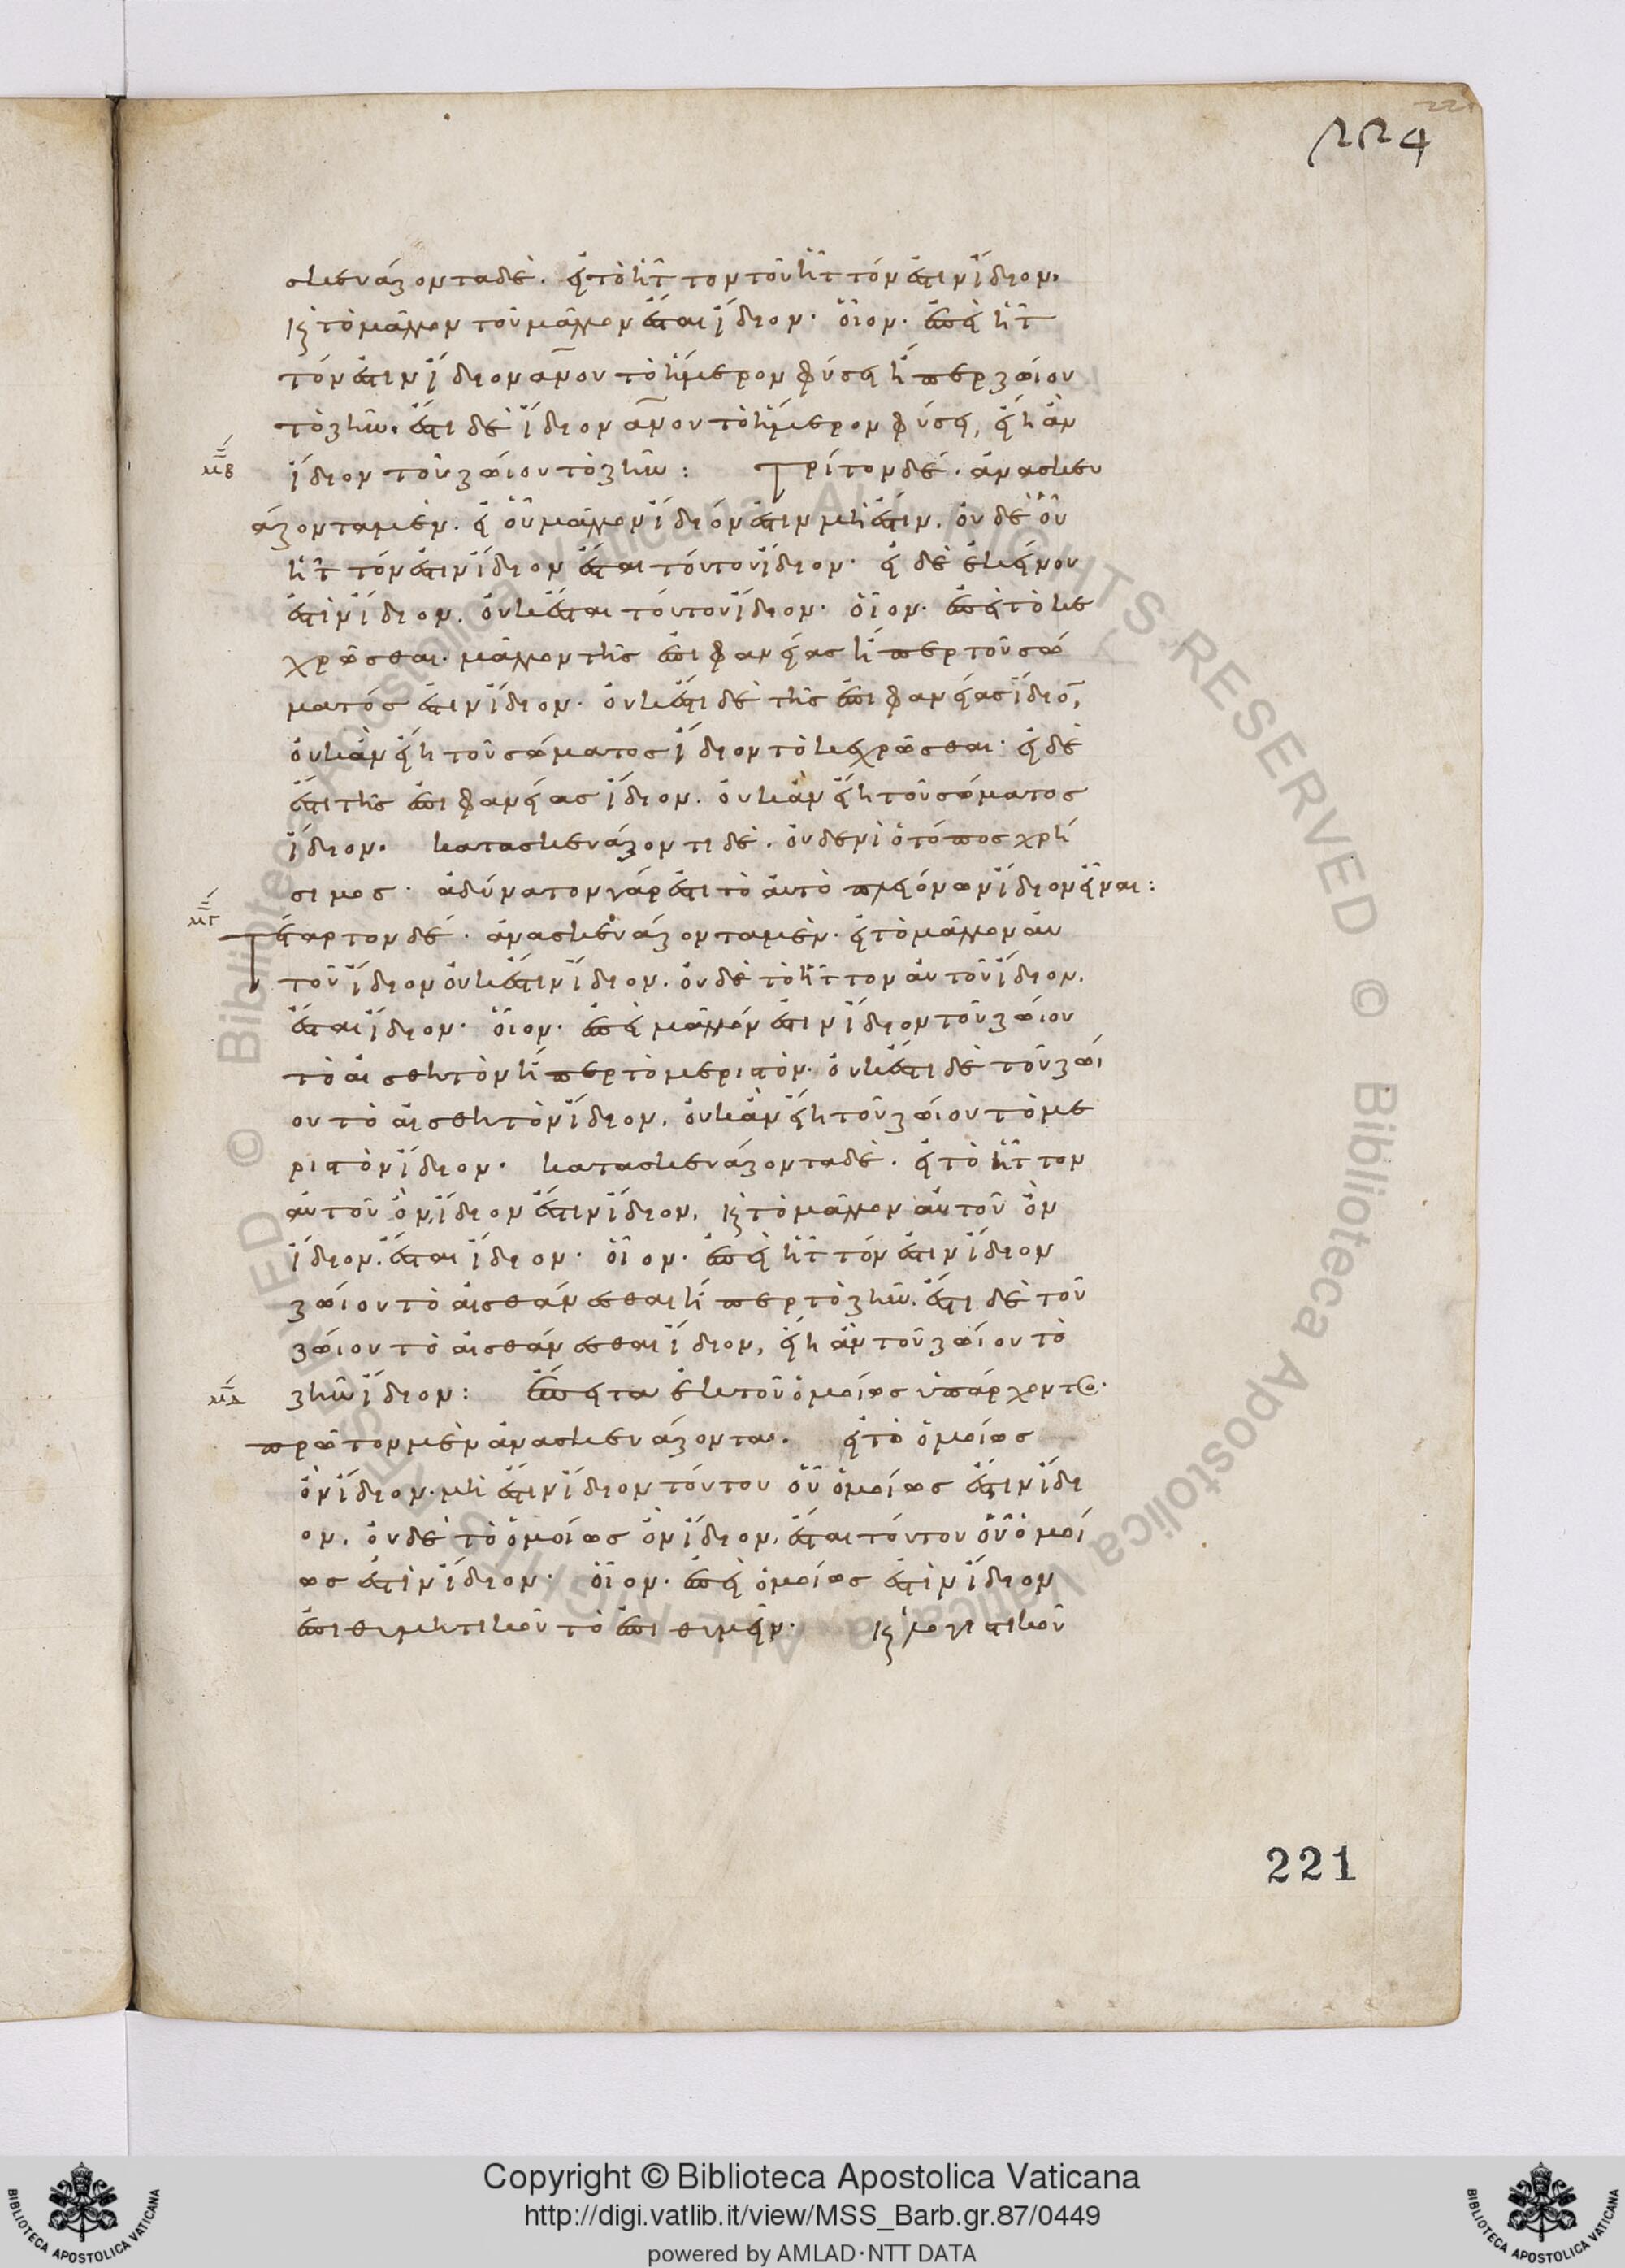 224
σκευάζοντα δὲ. εἰ τὸ ἧττον τοῦ ἧττόν ἐστιν ἴδιον.
καὶ τὸ μᾶλλον τοῦ μᾶλλον ἔσται ἴδιον. οἷον. ἐπεὶ ἧτ
τόν ἐστιν ἴδιον ἀνου τὸ ἥμερον φύσει ἤπερ ζώιου
τὸ ζῆν. ἔστι δὲ ἴδιον ἀνου τὸ ἥμερον φύσει, εἴη ἂν
μβ ἴδιον τοῦ ζώιου τὸ ζῆν: Τρίτον δέ. ἀνασκευ
άζοντα μὲν. εἰ οὗ μᾶλλον ἴδιόν ἐστιν μή ἐστιν. οὐδὲ οὗ
ἧττόν ἐστιν ἴδιον ἔσται τούτου ἴδιον. εἰ δὲ ἐκείνου
ἐστὶν ἴδιον. οὐκ ἔσται τούτου ἴδιον. οἷον. ἐπεὶ τὸ κε
χρῶσθαι. μᾶλλον τῆς ἐπιφανείας ἤπερ τοῦ σώ
ματός ἐστιν ἴδιον. οὐκ ἔστι δὲ τῆς ἐπιφανείας ἴδιο,
οὐκ ἂν εἴη τοῦ σώματος ἴδιον τὸ κεχρῶσθαι. εἰ δὲ
ἔστι τῆς ἐπιφανείας ἴδιον. οὐκ ἂν εἴη τοῦ σώματος
ἴδιον. κατασκευάζοντι δὲ. οὐδενὶ ὁ τόπος χρή
σιμος. ἀδύνατον γάρ ἐστι τὸ αὐτὸ πλειόνων ἴδιον εἶναι:
μγ Τέταρτον δέ. ἀνασκευάζοντα μὲν. εἰ τὸ μᾶλλον αὐ
τοῦ ἴδιον οὐκ ἔστιν ἴδιον. οὐδὲ τὸ ἧττον αὐτοῦ ἴδιον.
ἔσται ἴδιον. οἷον. ἐπεὶ μᾶλλόν ἐστιν ἴδιον τοῦ ζώιου
τὸ αἰσθητὸν ἤπερ τὸ μεριστόν. οὐκ ἔστι δὲ τοῦ ζώι
ου τὸ αἰσθητὸν ἴδιον. οὐκ ἂν εἴη τοῦ ζώιου τὸ με
ριστὸν ἴδιον. κατασκευάζοντα δὲ. εἰ τὸ ἧττον
αὐτοῦ ὂν ἴδιον ἔστιν ἴδιον. καὶ τὸ μᾶλλον αὐτοῦ ὂν
ἴδιον. ἔσται ἴδιον. οἷον. ἐπεὶ ἧττόν ἐστιν ἴδιον
ζώιου τὸ αἰσθάνεσθαι ἤπερ τὸ ζῆν. ἔστι δὲ τοῦ
ζώιου τὸ αἰσθάνεσθαι ἴδιον, εἴη ἂν τοῦ ζώιου τὸ
μδ ζῆν ἴδιον: ἔπειτα ἐκ τοῦ ὁμοίως ὑπάρχοντος.
πρῶτον μὲν ἀνασκευάζοντα. εἰ τὸ ὁμοίως
ὂν ἴδιον. μὴ ἔστιν ἴδιον τούτου οὗ ὁμοίως ἐστὶν ἴδι
ον. οὐδὲ τὸ ὁμοίως ὂν ἴδιον. ἔσται τούτου οὗ ὁμοί
ως ἐστὶν ἴδιον. οἷον. ἐπεὶ ὁμοίως ἐστὶν ἴδιον
ἐπιθυμητικοῦ τὸ ἐπιθυμεῖν. καὶ λογιστικοῦ
221
© Biblioteca Apostolica Vaticana ALL RIGHTS RESERVED © Biblioteca Apostolica Vaticana ALL RIGHTS RESERVED
Copyright © Biblioteca Apostolica Vaticana
http://digi.vatlib.it/view/MSS_Barb.gr.87/0449
powered by AMLAD·NTT DATA
BIBLIOTECA APOSTOLICA VATICANA
BIBLIOTECA APOSTOLICA VATICANA